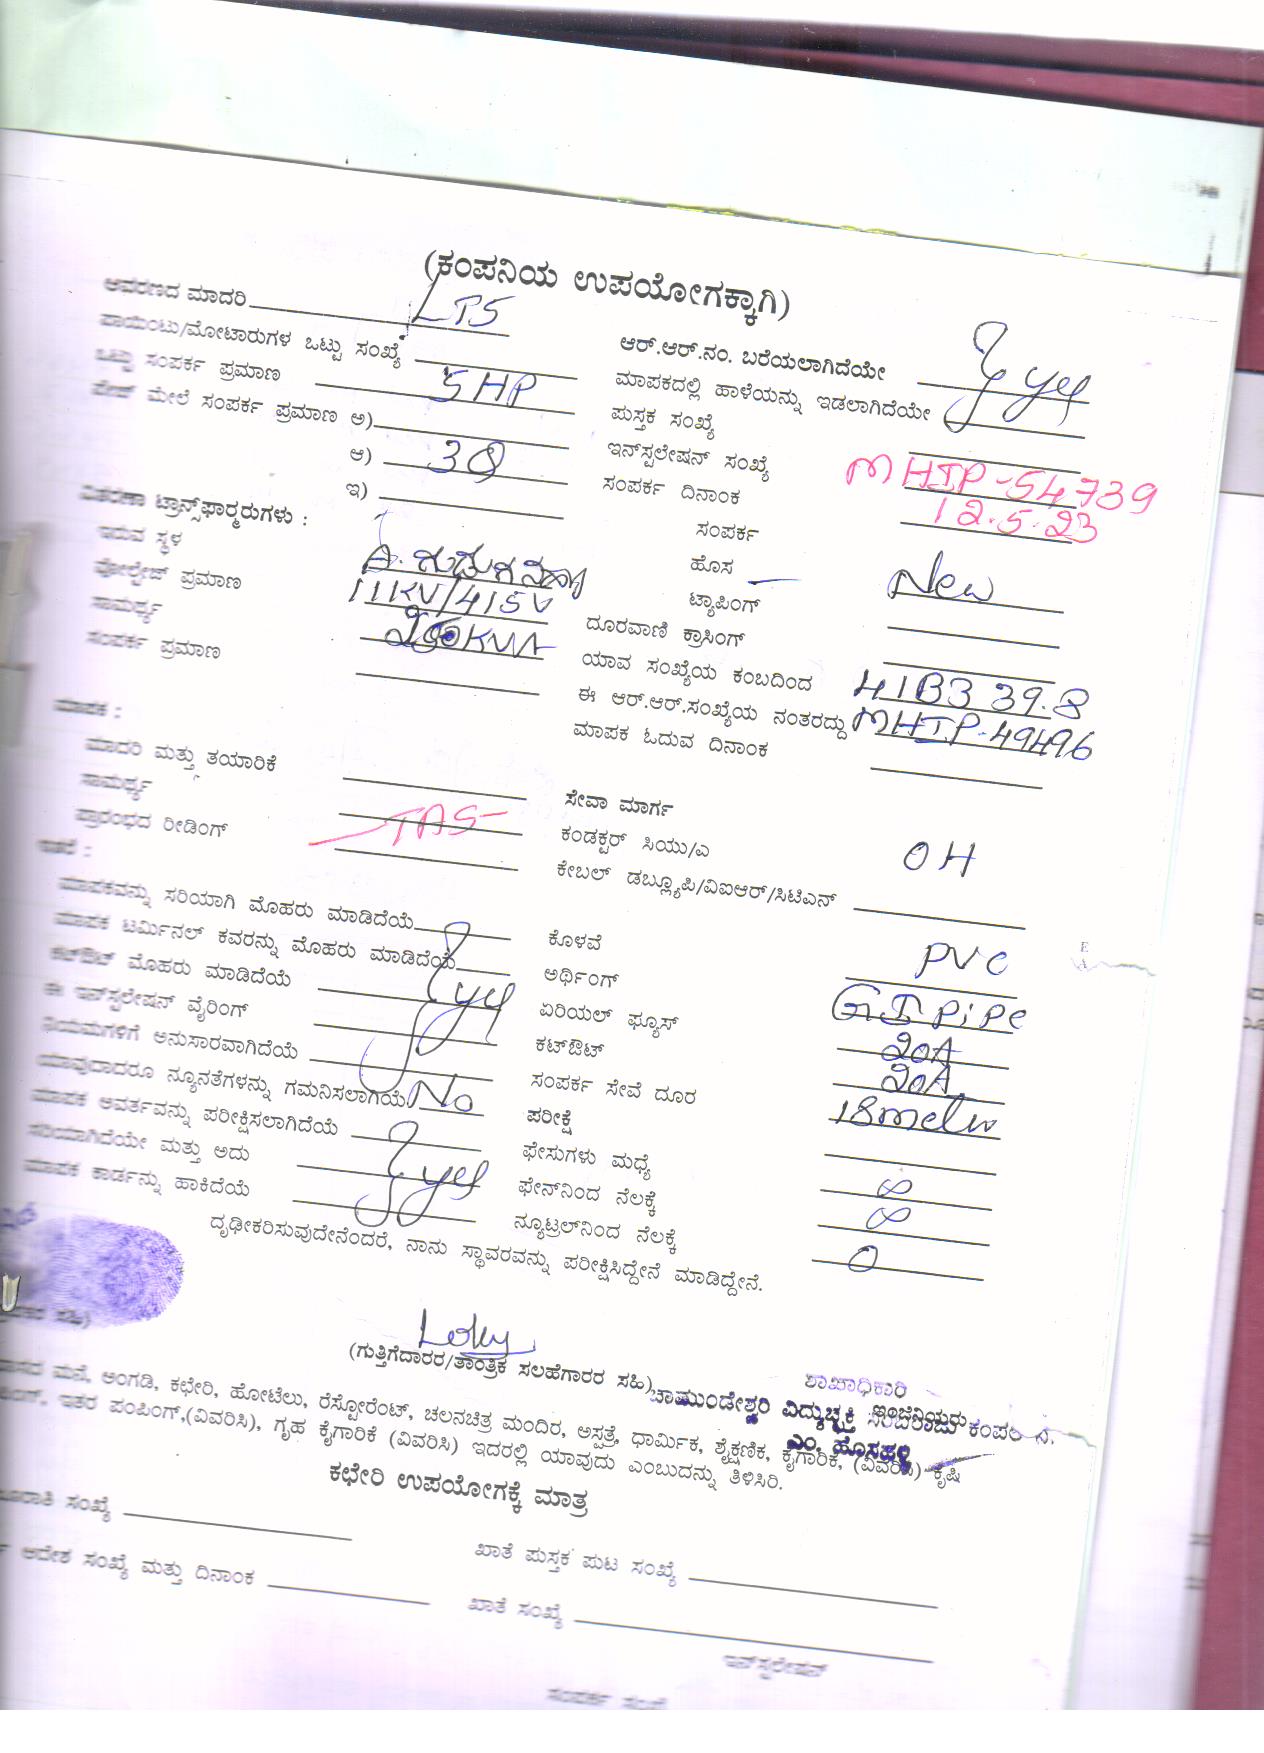 (ಕಂಪನಿಯ ಉಪಯೋಗಕ್ಕಾಗಿ)
ಆವರಣದ ಮಾದರಿ LT5
ಪಾಯಿಂಟು/ಮೋಟಾರುಗಳ ಒಟ್ಟು ಸಂಖ್ಯೆ
ಒಟ್ಟಾ ಸಂಪರ್ಕ ಪ್ರಮಾಣ 5HP
ಪೇಜ್ ಮೇಲೆ ಸಂಪರ್ಕ ಪ್ರಮಾಣ ಅ)
ಆ) 3Ø
ಇ)
ವಿತರಣಾ ಟ್ರಾನ್ಸ್‌ಫಾರ್‍ಮರುಗಳು :
ಇರುವ ಸ್ಥಳ
ವೋಲ್ಟೇಜ್ ಪ್ರಮಾಣ 11KV/415V
ಸಾಮರ್ಥ್ಯ
ಸಂಪರ್ಕ ಪ್ರಮಾಣ
ಮಾಪಕ :
ಮಾದರಿ ಮತ್ತು ತಯಾರಿಕೆ
ಸಾಮರ್ಥ್ಯ
ಪ್ರಾರಂಭದ ರೀಡಿಂಗ್
ಇತರೆ :
ಮಾಪಕವನ್ನು ಸರಿಯಾಗಿ ಮೊಹರು ಮಾಡಿದೆಯೆ
ಮಾಪಕ ಟರ್ಮಿನಲ್ ಕವರನ್ನು ಮೊಹರು ಮಾಡಿದೆಯೆ
ಕಟ್‌ಔಟ್ ಮೊಹರು ಮಾಡಿದೆಯೆ yes
ಈ ಇನ್‌ಸ್ಟಲೇಷನ್ ವೈರಿಂಗ್
ನಿಯಮಗಳಿಗೆ ಅನುಸಾರವಾಗಿದೆಯೆ
ಯಾವುದಾದರೂ ನ್ಯೂನತೆಗಳನ್ನು ಗಮನಿಸಲಾಗಿಯೆ No
ಮಾಪಕ ಆವರ್ತವನ್ನು ಪರೀಕ್ಷಿಸಲಾಗಿದೆಯೆ
ಸರಿಯಾಗಿದೆಯೇ ಮತ್ತು ಅದು yes
ಮಾಪಕ ಕಾರ್ಡನ್ನು ಹಾಕಿದೆಯೆ
ಆರ್.ಆರ್.ನಂ. ಬರೆಯಲಾಗಿದೆಯೇ
ಮಾಪಕದಲ್ಲಿ ಹಾಳೆಯನ್ನು ಇಡಲಾಗಿದೆಯೇ yes
ಪುಸ್ತಕ ಸಂಖ್ಯೆ
ಇನ್‌ಸ್ಟಲೇಷನ್ ಸಂಖ್ಯೆ MHIP-54739
ಸಂಪರ್ಕ ದಿನಾಂಕ 12.5.23
ಸಂಪರ್ಕ
ಹೊಸ New
ಟ್ಯಾಪಿಂಗ್
ದೂರವಾಣಿ ಕ್ರಾಸಿಂಗ್
ಯಾವ ಸಂಖ್ಯೆಯ ಕಂಬದಿಂದ 41B3 39.8
ಈ ಆರ್.ಆರ್.ಸಂಖ್ಯೆಯ ನಂತರದ್ದು MHIP-49496
ಮಾಪಕ ಓದುವ ದಿನಾಂಕ
ಸೇವಾ ಮಾರ್ಗ
ಕಂಡಕ್ಟರ್ ಸಿಯು/ಎ OH
ಕೇಬಲ್ ಡಬ್ಲ್ಯೂಪಿ/ವಿಐಆರ್/ಸಿಟಿಎನ್
ಕೊಳವೆ PVC
ಅರ್ಥಿಂಗ್ GI Pipe
ಏರಿಯಲ್ ಫ್ಯೂಸ್ 20A
ಕಟ್‌ಔಟ್ 20A
ಸಂಪರ್ಕ ಸೇವೆ ದೂರ
ಪರೀಕ್ಷೆ
ಫೇಸುಗಳು ಮಧ್ಯೆ ∞
ಫೇಸ್‌ನಿಂದ ನೆಲಕ್ಕೆ ∞
ನ್ಯೂಟ್ರಲ್‌ನಿಂದ ನೆಲಕ್ಕೆ 0
ದೃಢೀಕರಿಸುವುದೇನೆಂದರೆ, ನಾನು ಸ್ಥಾವರವನ್ನು ಪರೀಕ್ಷಿಸಿದ್ದೇನೆ ಮಾಡಿದ್ದೇನೆ.
(ಗುತ್ತಿಗೆದಾರರ/ತಾಂತ್ರಿಕ ಸಲಹೆಗಾರರ ಸಹಿ)
ಶಾಖಾಧಿಕಾರಿ
ಚಾಮುಂಡೇಶ್ವರಿ ವಿದ್ಯುಚ್ಛಕ್ತಿ ಕಂಪನಿ ನಿ.
ಮನೆ, ಅಂಗಡಿ, ಕಛೇರಿ, ಹೋಟೆಲು, ರೆಸ್ಟೋರೆಂಟ್, ಚಲನಚಿತ್ರ ಮಂದಿರ, ಅಸ್ಪತ್ರೆ, ಧಾರ್ಮಿಕ, ಶೈಕ್ಷಣಿಕ, ಕೈಗಾರಿಕೆ, (ವಿವರಿಸಿ) ಕೃಷಿ
ಇತರ ಪಂಪಿಂಗ್,(ವಿವರಿಸಿ), ಗೃಹ ಕೈಗಾರಿಕೆ (ವಿವರಿಸಿ) ಇದರಲ್ಲಿ ಯಾವುದು ಎಂಬುದನ್ನು ತಿಳಿಸಿರಿ.
ಕಛೇರಿ ಉಪಯೋಗಕ್ಕೆ ಮಾತ್ರ
ಸಂಖ್ಯೆ
ಖಾತೆ ಪುಸ್ತಕ ಪುಟ ಸಂಖ್ಯೆ
ಆದೇಶ ಸಂಖ್ಯೆ ಮತ್ತು ದಿನಾಂಕ
ಖಾತೆ ಸಂಖ್ಯೆ
ಇನ್‌ಸ್ಟಲೇಷನ್